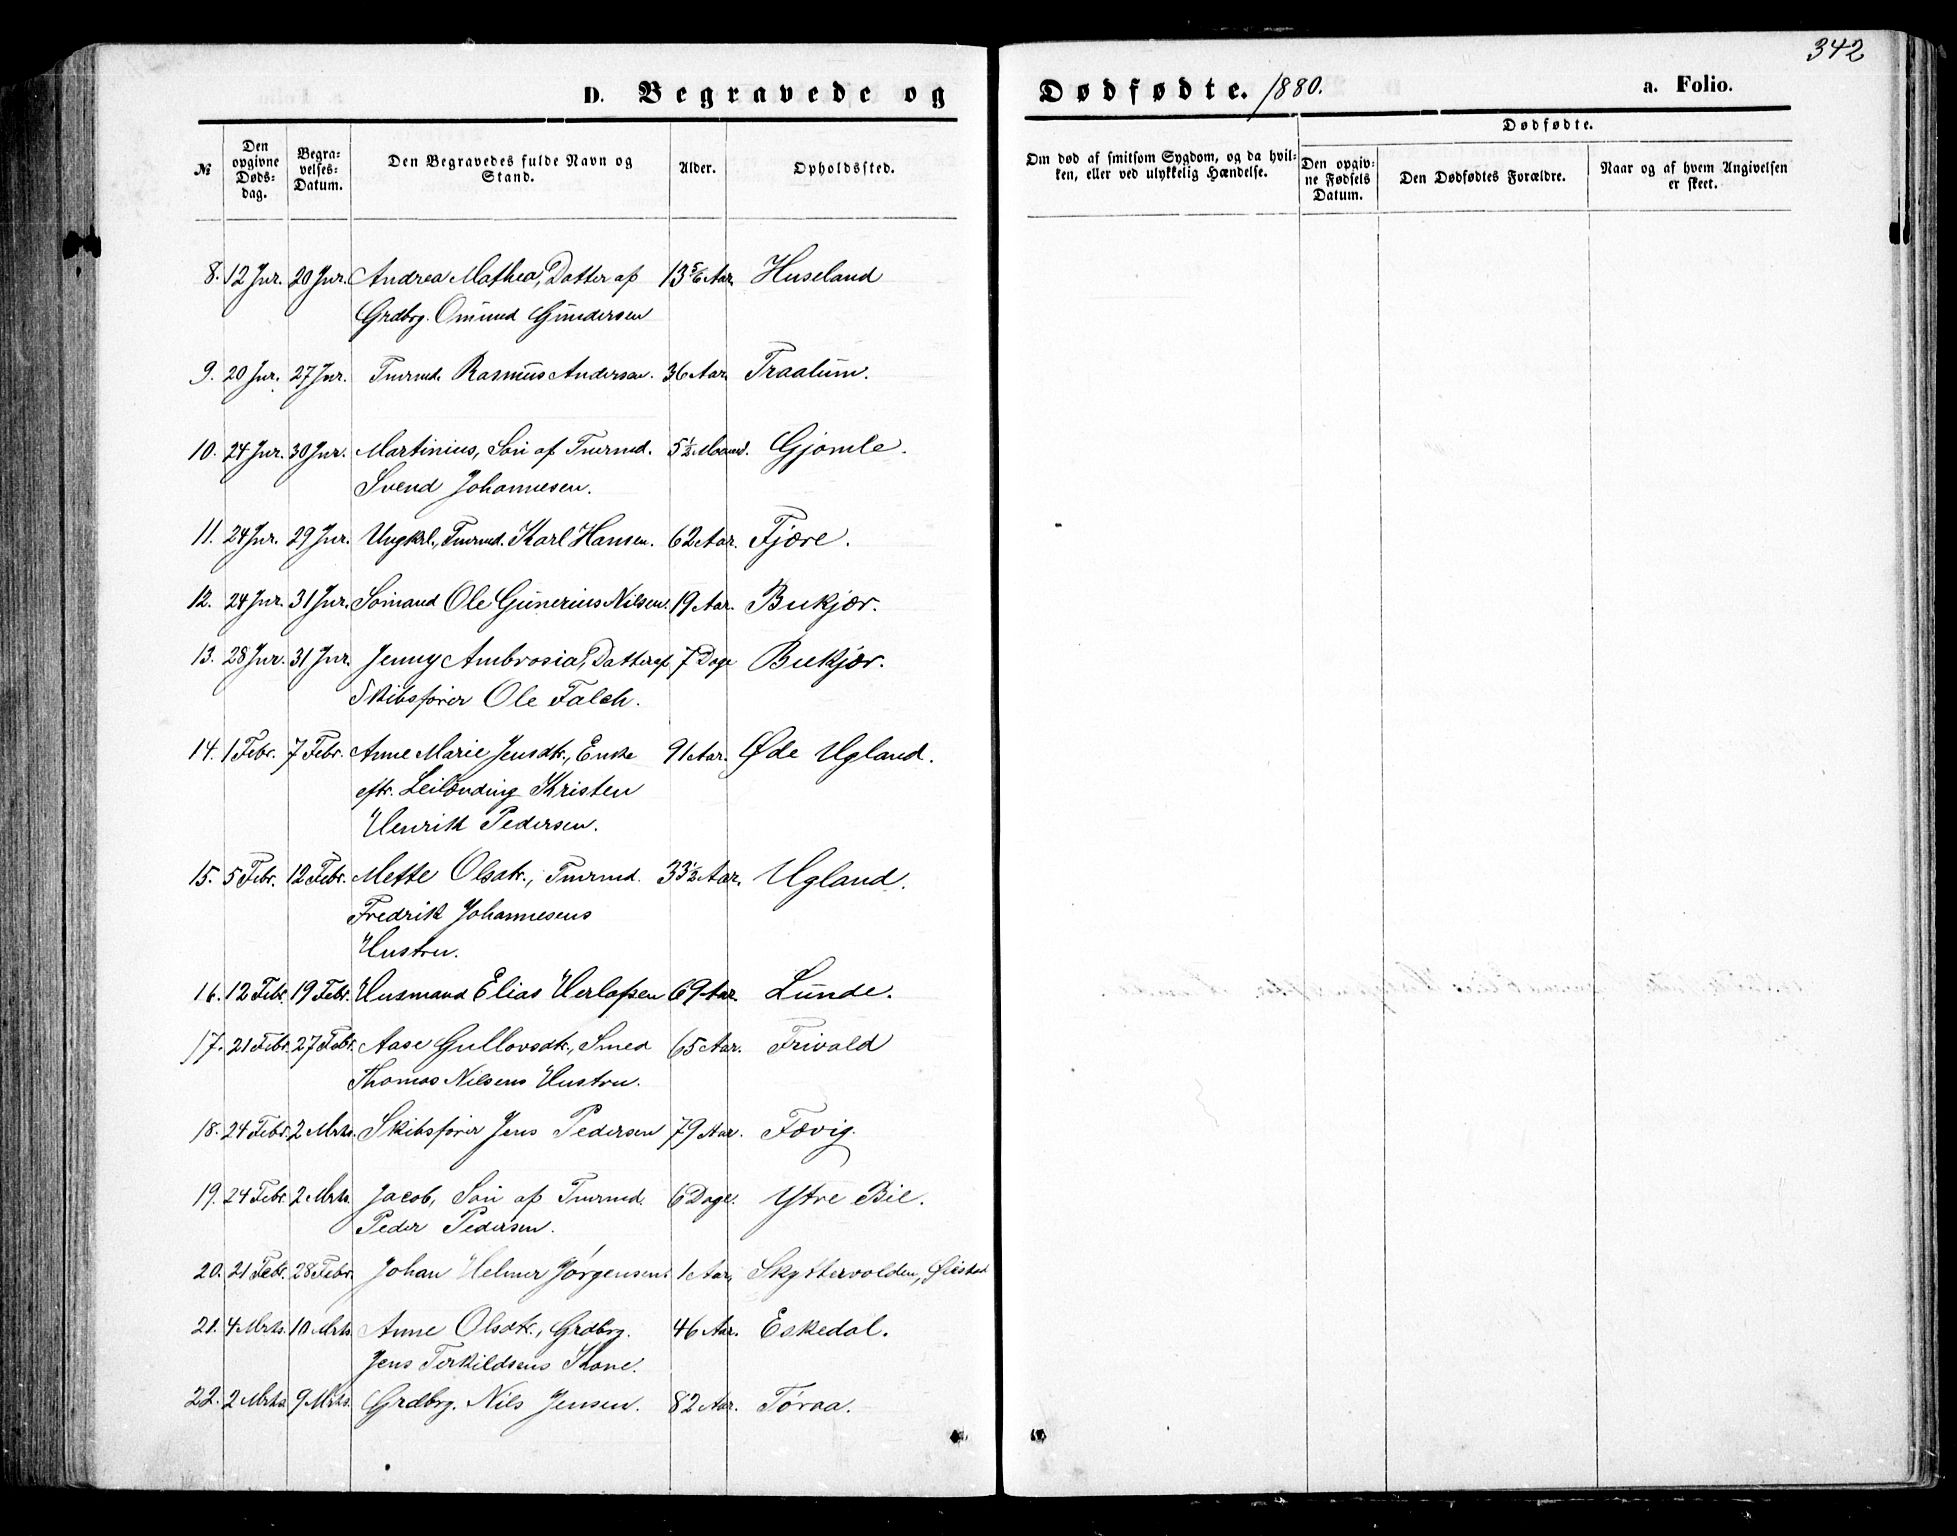 342
D. Begravede og Dødfødte. 1880. a. Folio.
№
Den opgivne Døds-dag.
Begra-velses-Datum.
Den Begravedes fulde Navn og Stand.
Alder.
Opholdssted.
Om død af smitsom Sygdom, og da hvil-ken, eller ved ulykkelig Hændelse.
Dødfødte.
Den opgiv-ne Fødsels Datum.
Den Dødfødtes Forældre.
Naar og af hvem Angivelsen er skeet.
8. 12 Jnr. 20 Jnr. Andrea Mathea, Datter af 13 5/6 Aar. Huseland
Grdbrg. Omund Gundersen
9. 20 Jnr. 27 Jnr. Tmrmd. Rasmus Andersen. 36 Aar. Traalum.
10. 24 Jnr. 30 Jnr. Martinius, Sön af Tmrmd. 5 1/2 Maaned. Gjømle.
Svend Johannesen.
11. 24 Jnr. 29 Jnr. Ungkrl., Tmrmd. Karl Hansen. 62 Aar. Fjære.
12. 24 Jnr. 31 Jnr. Sömand Ole Gunerius Nilsen. 19 Aar. Bukjær.
13. 28 Jnr. 31 Jnr. Jenny Ambrosia, Datter af 7 Dage Bukjær.
Skibsfører Ole Falch.
14. 1 Febr. 7 Febr. Anne Marie Jensdtr., Enke 91 Aar. Øde Ugland.
eftr. Leilænding Kristen
Henrik Pedersen.
15. 5 Febr. 12 Febr. Mette Olsdtr., Tmrmd. 33 1/2 Aar. Ugland.
Fredrik Johannesens
Hustru.
16. 12 Febr. 19 Febr. Husmand Elias Herlofsen 69 Aar. Lunde.
17. 21 Febr. 27 Febr. Aase Gullovsdtr., Smed 65 Aar. Frivold
Thomas Nilsens Hustru.
18. 24 Febr. 2 Mrts. Skibsfører Jens Pedersen 79 Aar. Fævig.
19. 24 Febr. 2 Mrts. Jacob, Sön af Tmrmd. 6 Dage. Ytre Bie.
Peder Pedersen.
20. 21 Febr. 28 Febr. Johan Helmer Jørgensen. 1 Aar, Skyttervolden, Øiestad
21. 4 Mrts. 10 Mrts. Anne Olsdtr., Grdbrg. 46 Aar. Eskedal.
Jens Terkildsens Kone.
22. 2 Mrts. 9 Mrts. Grdbrg. Nils Jensen. 82 Aar. Tøraa.